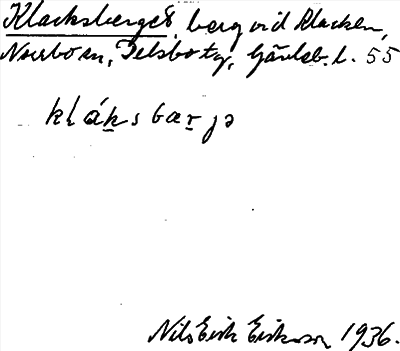 Klacksberget berg vid Klacken,
Norrbo sn, Delsbo tg, Gävleb. l. 55
kḷáksbærjə
Nils Erik Eriksson 1936.